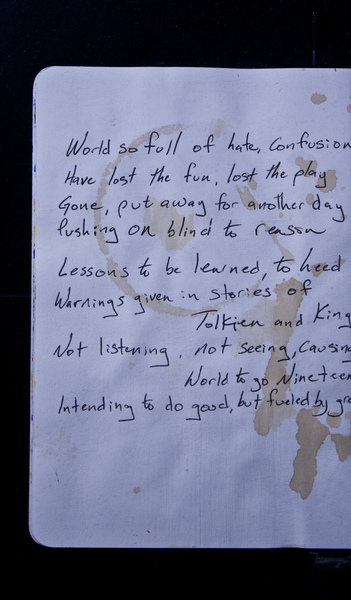 World so full of hate, Confusion
Have lost the fun, lost the play
Gone, put away for another day
Pushing on blind to reason
Lessons to be learned, to heed
Warnings given in stories of
Tolkien and King
Not listening, not seeing, causing
World to go Nineteen
Intending to do good, but fueled by